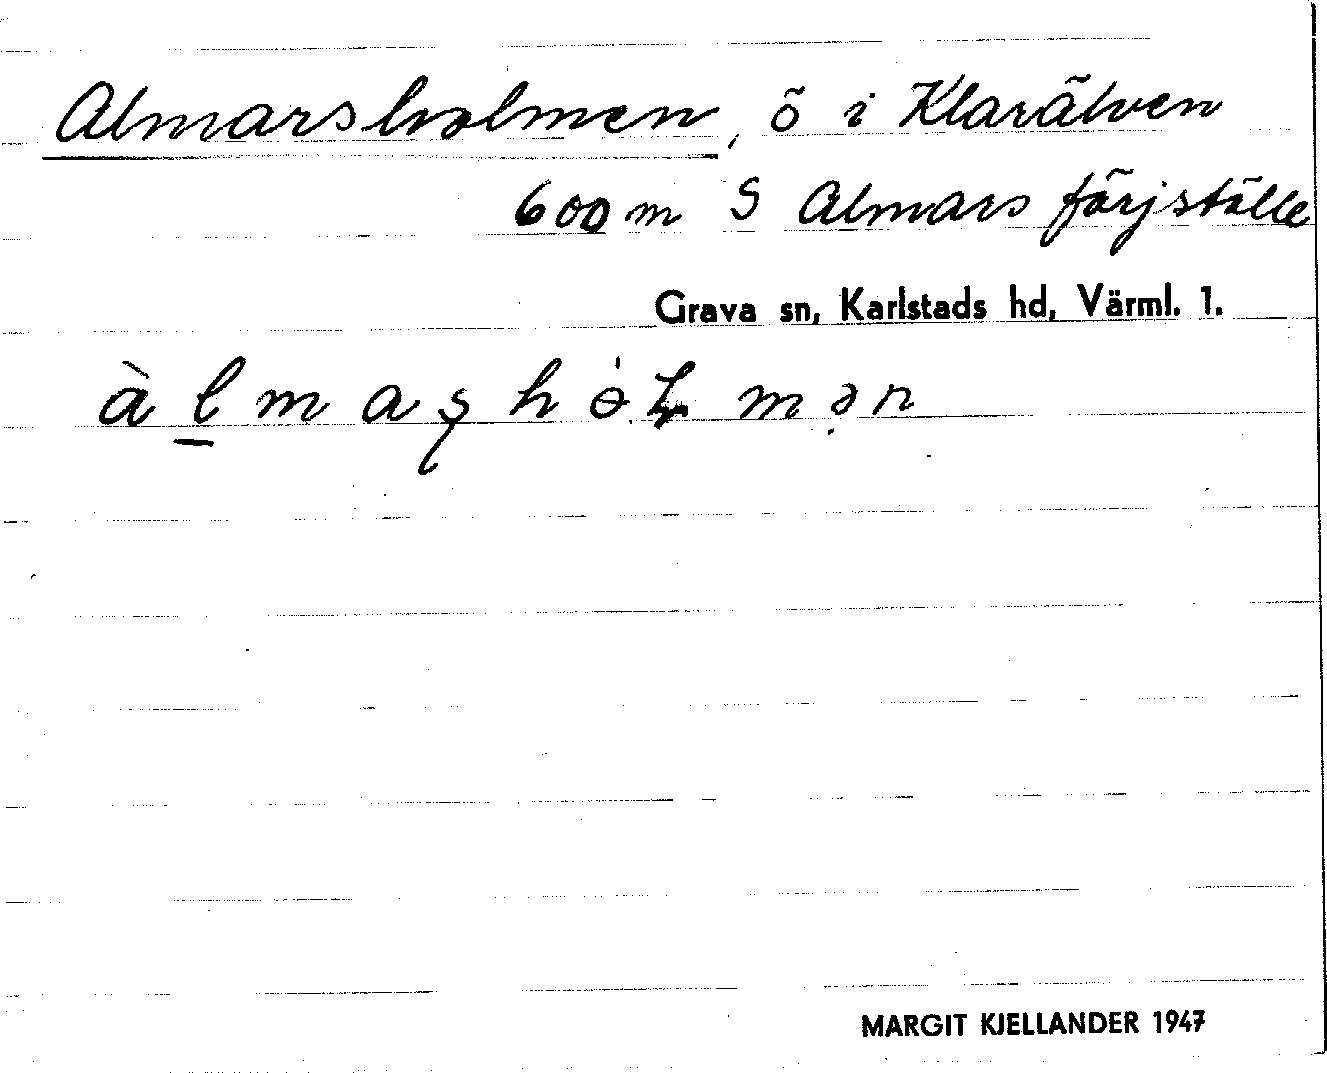 Almarsholmen, ö i Klarälven
600 m S Almars färjställe
Grava sn, Karlstads hd, Värml. 1.
àl̲maʂhɵ́ɽmən
MARGIT KJELLANDER 1947